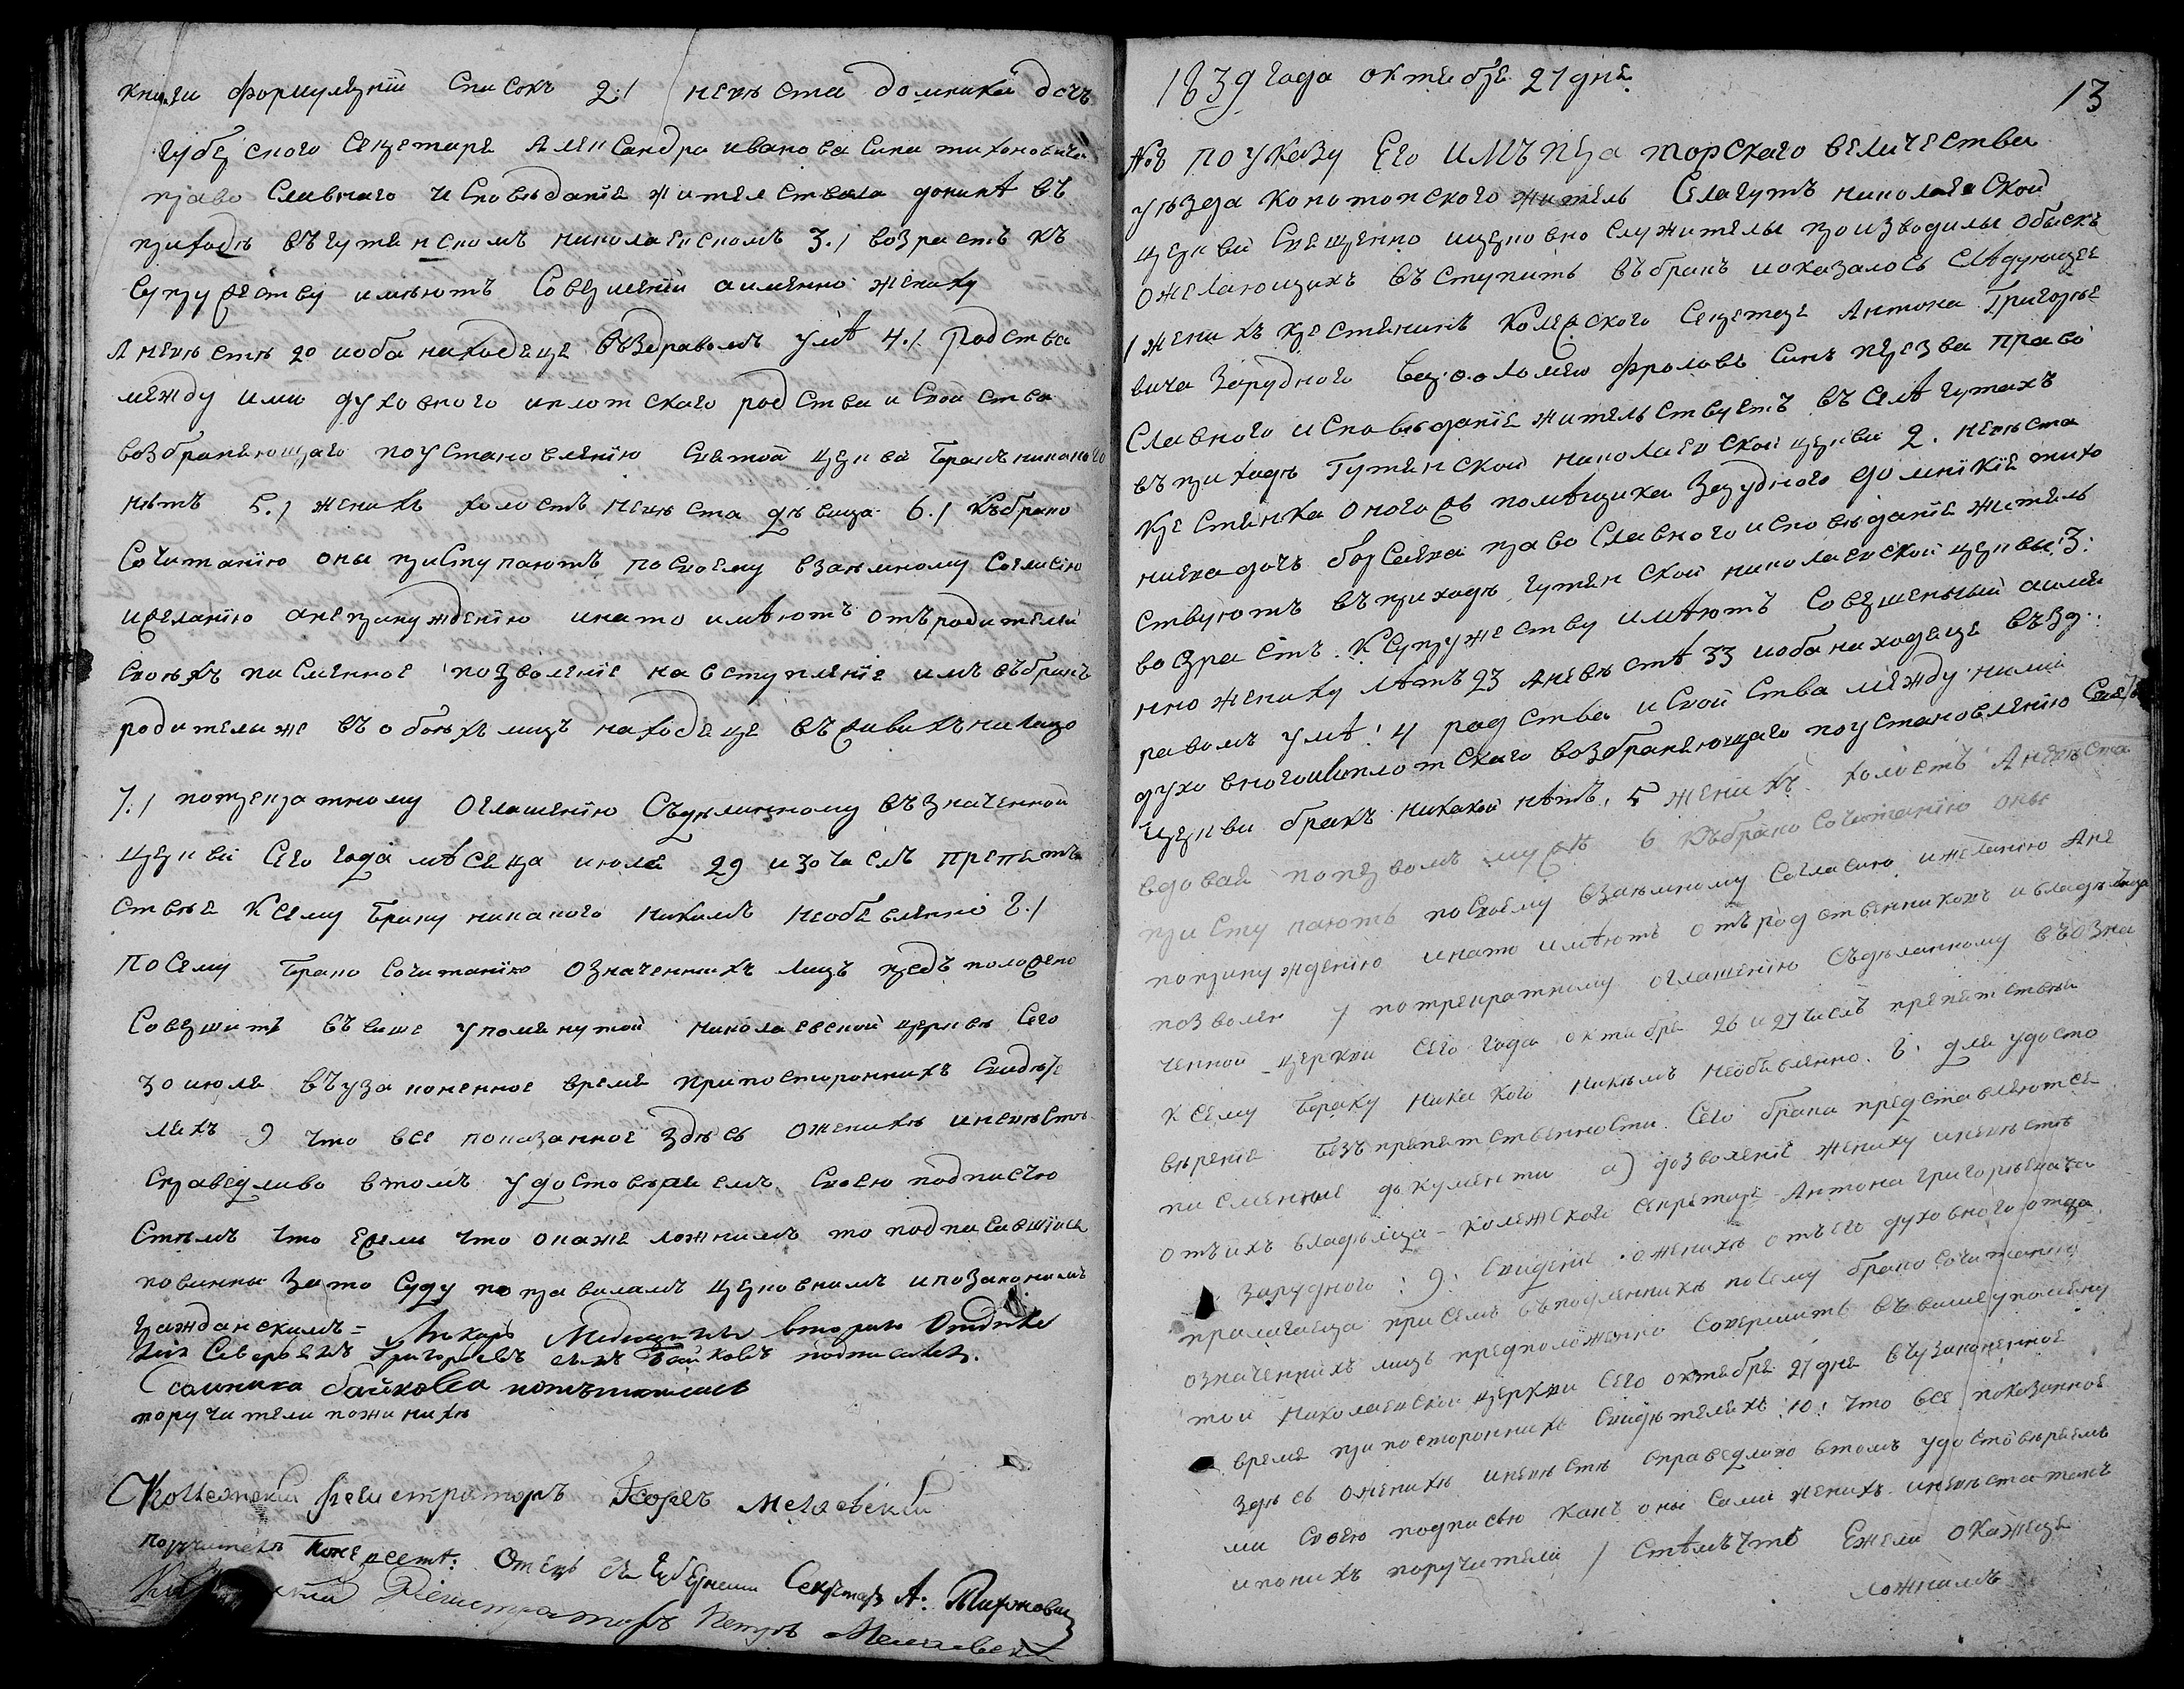 книги формулярній списокъ 2./ невѣста домникія дочъ
губерского секретаря Александра иванова сина тихоновича
право славного исповѣданіе жителствомъ донинѣ въ
приходѣ въ гутянскомъ николаевскомъ 3./ возрастъ къ
супружеству имѣютъ совершеній аименно жениху
А невѣстѣ 20 иоба находяця въ здравомъ умѣ 4./ родства
между ими духовного иплотскаго родства и своиства
возбраняющаго поустановленію святой церкви бракъ никакого
нѣтъ 5./ женихъ холостъ невѣста дѣвица 6./ Къ брако
сочитанію они приступаютъ посвоему взаѣмному согласію
ижеланію анепринужденію инато имѣютъ отъ родителей
своихъ писменное позволеніе навступленіе имъ въ бракъ
родителиже въ обоихъ лицъ находяця въ живихъ налицо
7./ потрекратному оглашенію съдѣланному въ значенной
церкви сего года мѣсеца июля 29 изочисль препят
ствіе ксему браку никакого никимъ необявленно 8./
посему брако сочитанію означеннихъ лицъ предположено
совершитъ въ више упомянутой николаевской церквѣ сего
30 июля въузаконенное время припостороннихъ свидѣте
ляхъ 9 что все показанное здѣсь оженихѣ иневѣстѣ
справедливо втомъ удостовѣряемъ своею подписью
стѣмъ что ежели что окаже ложнимъ то подписавшіися
повинни зато суду поправиламъ церковнимъ ипозаконамъ
гражданскимъ = Лѣкаръ Медицини второго Отдѣле
нія Северіянъ Григорьевъ синъ Байковъ подписался.
Домника байкова
поручители поженихѣ
Колежскій Регистраторъ
поручителъ Поневестѣ: Отець ея Губернски Секретаръ А: Тихоновичъ
Регистраторъ Петръ
1839 года октября 27 дня
13
№ 8 поуказу Его имъператорскаго величества
уѣзда конотопского житель Села гутъ николаевской
церкви Священно ицерковно служители производили обыскъ
ожелающихъ въступитъ въбракъ иоказалось слѣдующее
1 женихъ крестянинъ колежского секретаря Антона Григорье
вича Зарудного Варфоломей фроловъ синъ право
славного исповѣданіе жителъствуетъ въ селѣ гутахъ
въ приходѣ Гутянской николаевской церкви 2. невѣста
крестянка оногожъ помѣщика Зарудного домникіе тихо
право славного исповѣданіе жителъ
ствуютъ въприходѣ гутянской николаевской церкви: 3:
возрастъ. К супружеству имѣютъ совершенный аиме
нно жениху лѣтъ 23 аневѣстѣ 33 иоба находяця въ зд
равомъ умѣ: 4 родства и свойства между ними
духовного иплотскаго возбраняющаго поустановленію свято
церкви бракъ никакой нѣтъ, 5 женихъ холостъ Аневѣста
вдовая попервомъ мужѣ 6 Къ брако сочитанію они
приступаютъ посвоему взаѣмному согласию, ижеланію Ане
попринужденію инато имѣютъ отъ родственниковъ ивладѣлца
позволен 7 потрекратному оглашенію съдѣланному въ озна
ченной церкви сего года октября 26 и 27 чисель препятствіе
к сему браку никакого никѣмъ необявленно. 8: для удосто
вѣреніе безъпрепятственности сего брака представляются
писменние документи а) дозволеніе жениху иневѣстѣ
отъихъ владѣлца - колежской секретаря Антона григорьевича
Зарудного: 9: оженихѣ отъ его духовного отца
прилагаеца присемъ посему брако сочитанію
означеннихъ лицъ предположенно совершитъ въ вишеупомяну
той николаевской церкви сего октября 27 дня въузаконенное
время припостороннихъ свидѣтеляхъ: 10: что все показанное
здѣсь оженихѣ иневѣстѣ справедливо втомъ удостовѣряемъ
ми своею подписью какъ они сами женихъ иневѣста такъ
ипонихъ поручители / стѣмъ что Ежели окажеце
ложнимъ